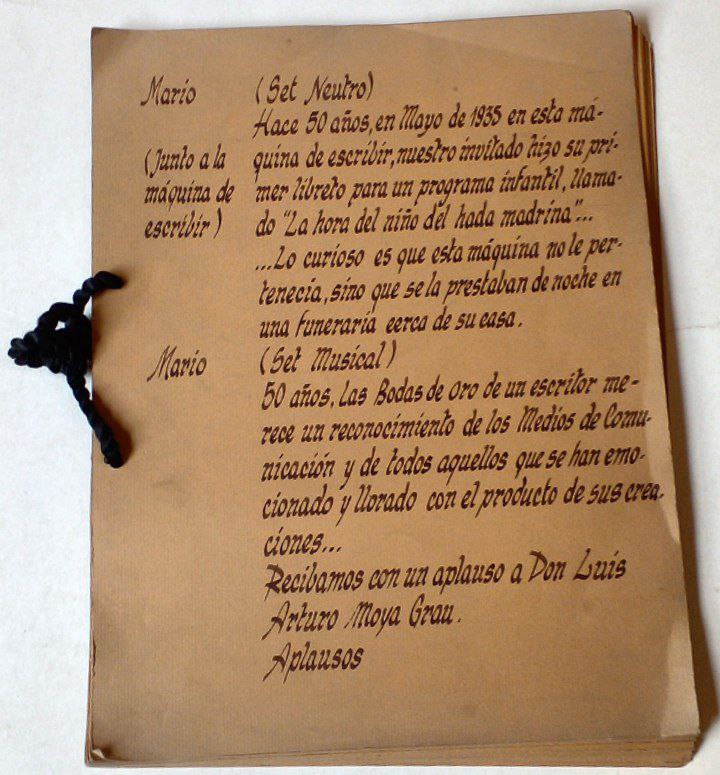 Mario (Set Neutro)
Hace 50 años, en Mayo de 1935 en esta má-
(Junto a la quina de escribir, nuestro invitado hizo su pri-
máquina de mer libreto para un programa infantil, llama-
escribir) do "La hora del niño del hada madrina"...
...Lo curioso es que esta máquina no le per-
tenecía, sino que se la prestaban de noche en
una funeraria cerca de su casa.
Mario (Set Musical)
50 años, Las Bodas de Oro de un escritor me-
rece un reconocimiento de los Medios de Comu-
nicación y de todos aquellos que se han emo-
cionado y llorado con el producto de sus crea-
ciones...
Recibamos con un aplauso a Don Luis
Arturo Moya Grau.
Aplausos